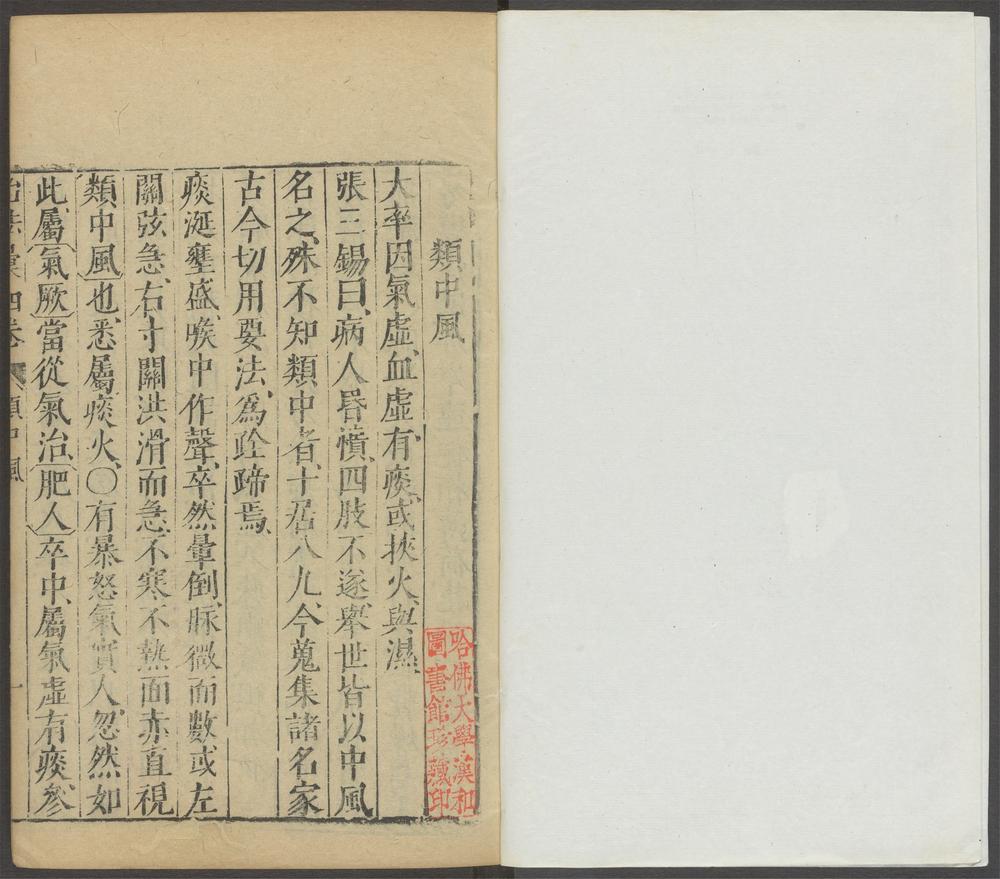 類中風
大率因氣虛血虛有痰或挾火與濕
張三錫曰病人昏憒四肢不遂舉世皆以中風
名之殊不知類中者十居八九今蒐集諸名家
古今切用要法為詮蹄焉
痰涎壅盛喉中作聲卒然暈倒脉微而數或左
關弦急右寸關洪滑而急不寒不熱面赤直視
類中風也悉屬痰火〇有暴怒氣實人忽然如
此屬氣厥當從氣治肥人卒中屬氣虛有痰參
四卷 類中風 一
哈佛大學漢和
圖書館珍藏印